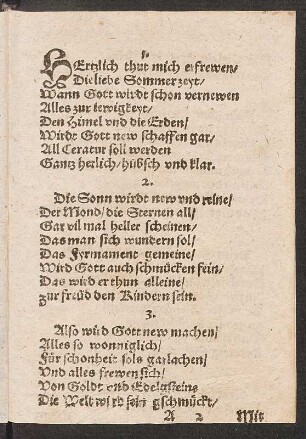 1.
HErtzlich thut mich erfrewen/
Die liebe Sommerzeyt/
Wann Gott wirdt schon vernewen
Alles zur ewigkeyt/
Den Himel vnd die Erden/
Wirdt Gott new schaffen gar/
All Ceratur soll werden
Gantz herlich/ hübsch vnd klar.
2.
Die Sonn wirdt new vnd reine/
Der Mond/ die Sternen all/
Gar vil mal heller scheinen/
Das man sich wundern sol/
Das Fyrmament gemeine/
Wird Gott auch schmücken fein/
Das wird er thun alleine/
zur freüd den Kindern sein.
3.
Also wird Gott new machen/
Alles so wonniglich/
Für schonheit sols gar lachen/
Vnd alles frewen sich/
Von Goldt vnd Edelgsteins
Die Welt wird sein gschmückt/
A 2 Mit